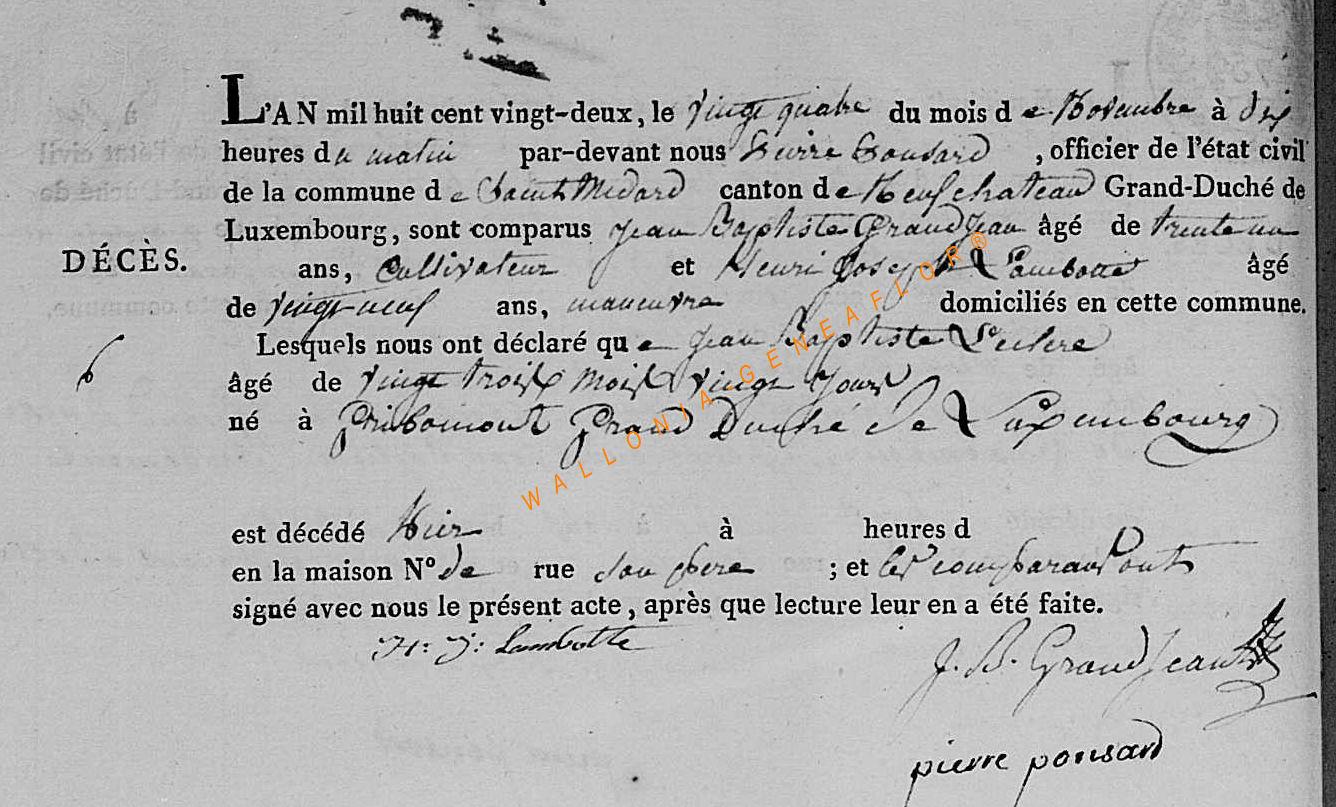 L'AN mil huit cent vingt-deux, le vingt quatre du mois de Novembre à dix
heures du matin par-devant nous Pierre Ponsard , officier de l'état civil
de la commune de Saint Medard canton de Neufchateau Grand-Duché de
Luxembourg, sont comparus Jean Baptiste GrandJean âgé de trente un
DÉCÈS.
ans, Cultivateur et Henri Joseph Lambotte âgé
de vingt-neuf ans, maneuvre domiciliés en cette commune.
Lesquels nous ont déclaré que Jean Baptiste
6
âgé de vingt trois mois vingt jours
né à Gribomont Grand Duché de Luxembourg
est décédé hier à heures d
en la maison N° de rue son pere ; et les comparans ont
signé avec nous le présent acte, après que lecture leur en a été faite.
H: J: Lambotte
J. B. GrandJean
pierre ponsard
WALLONIA-GENEAFLOR®